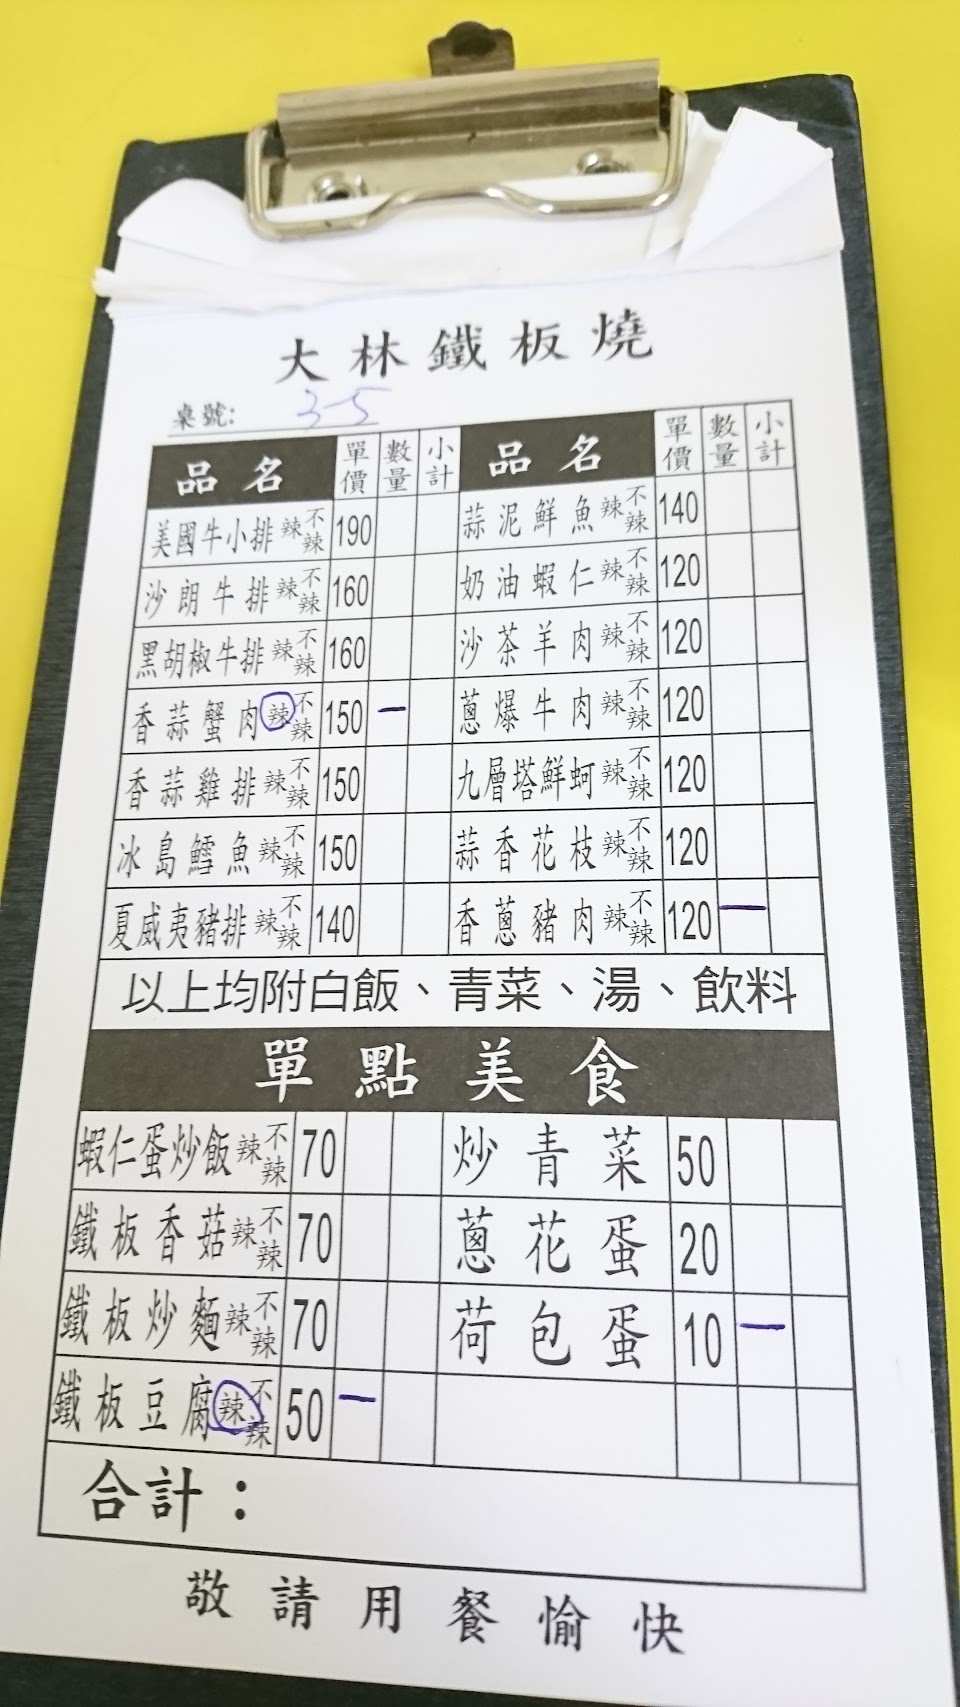 大林鐵板燒
桌號: 3-5
品名 單價 數量 小計 品名 單價 數量 小計
美國牛小排 辣 不辣 190 蒜泥鮮魚 辣 不辣 140
沙朗牛排 辣 不辣 160 奶油蝦仁 辣 不辣 120
黑胡椒牛排 辣 不辣 160 沙茶羊肉 辣 不辣 120
香蒜蟹肉 辣 不辣 150 一 蔥爆牛肉 辣 不辣 120
香蒜雞排 辣 不辣 150 九層塔鮮蚵 辣 不辣 120
冰島鱈魚 辣 不辣 150 蒜香花枝 辣 不辣 120
夏威夷豬排 辣 不辣 140 香蔥豬肉 辣 不辣 120 一
以上均附白飯、青菜、湯、飲料
單點美食
蝦仁蛋炒飯 辣 不辣 70 炒青菜 50
鐵板香菇 辣 不辣 70 蔥花蛋 20
鐵板炒麵 辣 不辣 70 荷包蛋 10 一
鐵板豆腐 辣 不辣 50 一
合計：
敬請用餐愉快